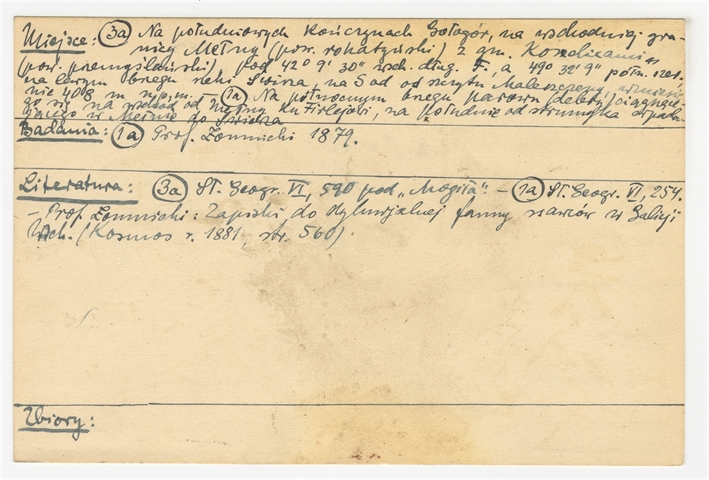 Miejsce: (3a) Na południowych kończynach Gołogór, na wschodniej gra-
nicy Mętny (pow. rohatyński) z gm.
(pow. przemyślański), (pod 42° 9' 30" wsch. dług. F., a 49° 32' 9" półn. szer.
na lewym brzegu rzeki Świrz, na S od szczytu wzniesie-
nie 408 m n.p.m. – (1a) Na północnym brzegu parowu (debry) ciągnące-
go się na wschód od Mętny ku Firlejowi, na południe od strumyka
w Mętnie do Świrza
Badania: (1a) Prof. Łomnicki 1879.
Literatura: (3a) Sł. Geogr. VI, 590 pod „Mogiła” – (1a) Sł. Geogr. VI, 254.
– Prof. Łomnicki: Zapiski do dyluwjalnej fauny ssawców w Galicji
Wsch. (Kosmos r. 1881, str. 560).
Zbiory: